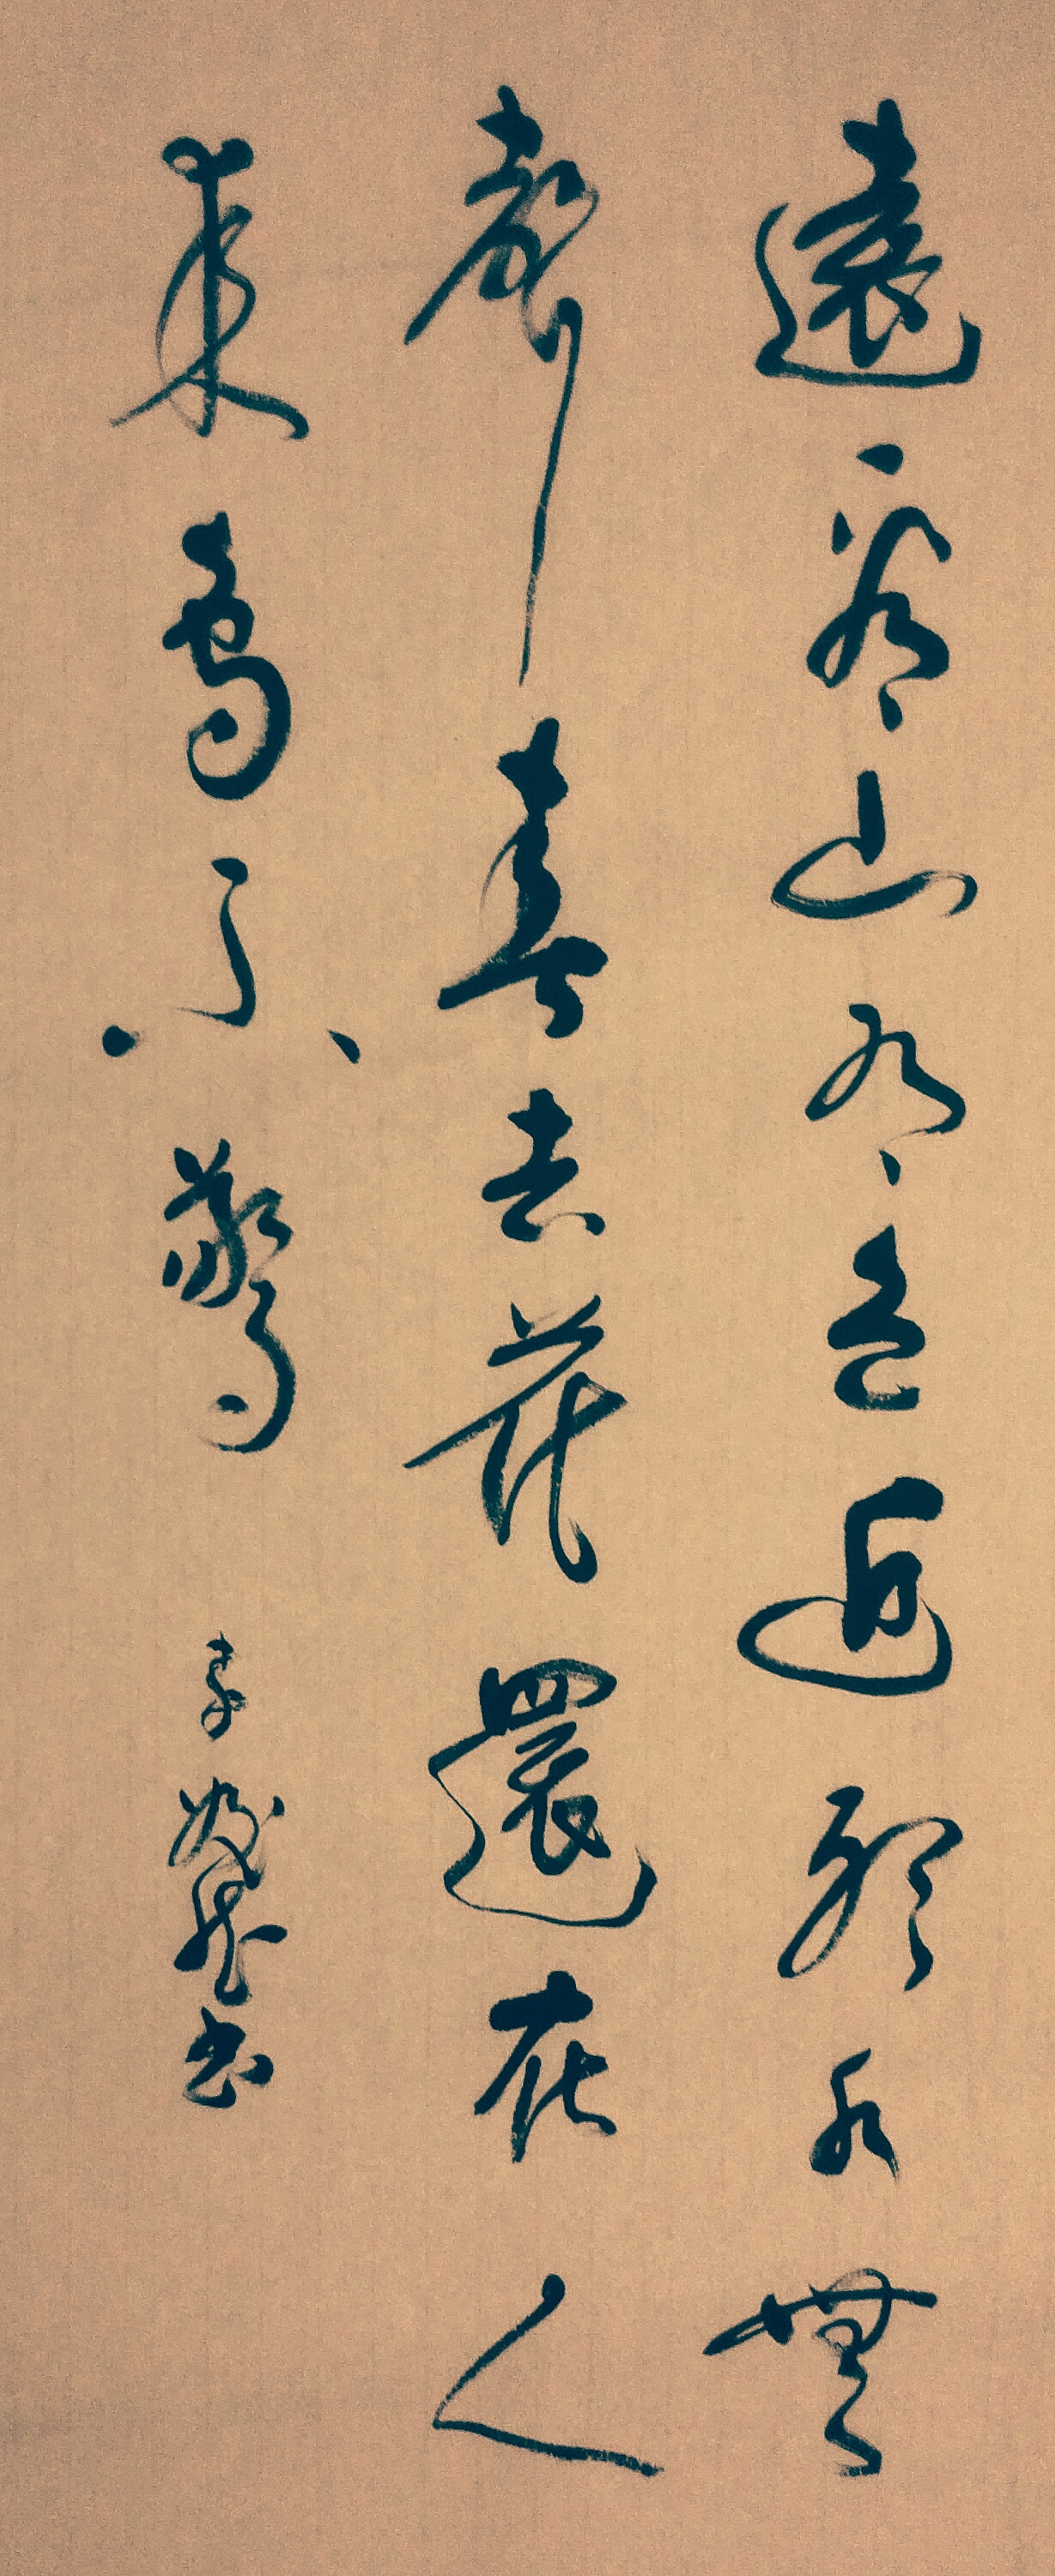 遠看山有色近聽水無
聲春去花還在人
來鳥不驚
書